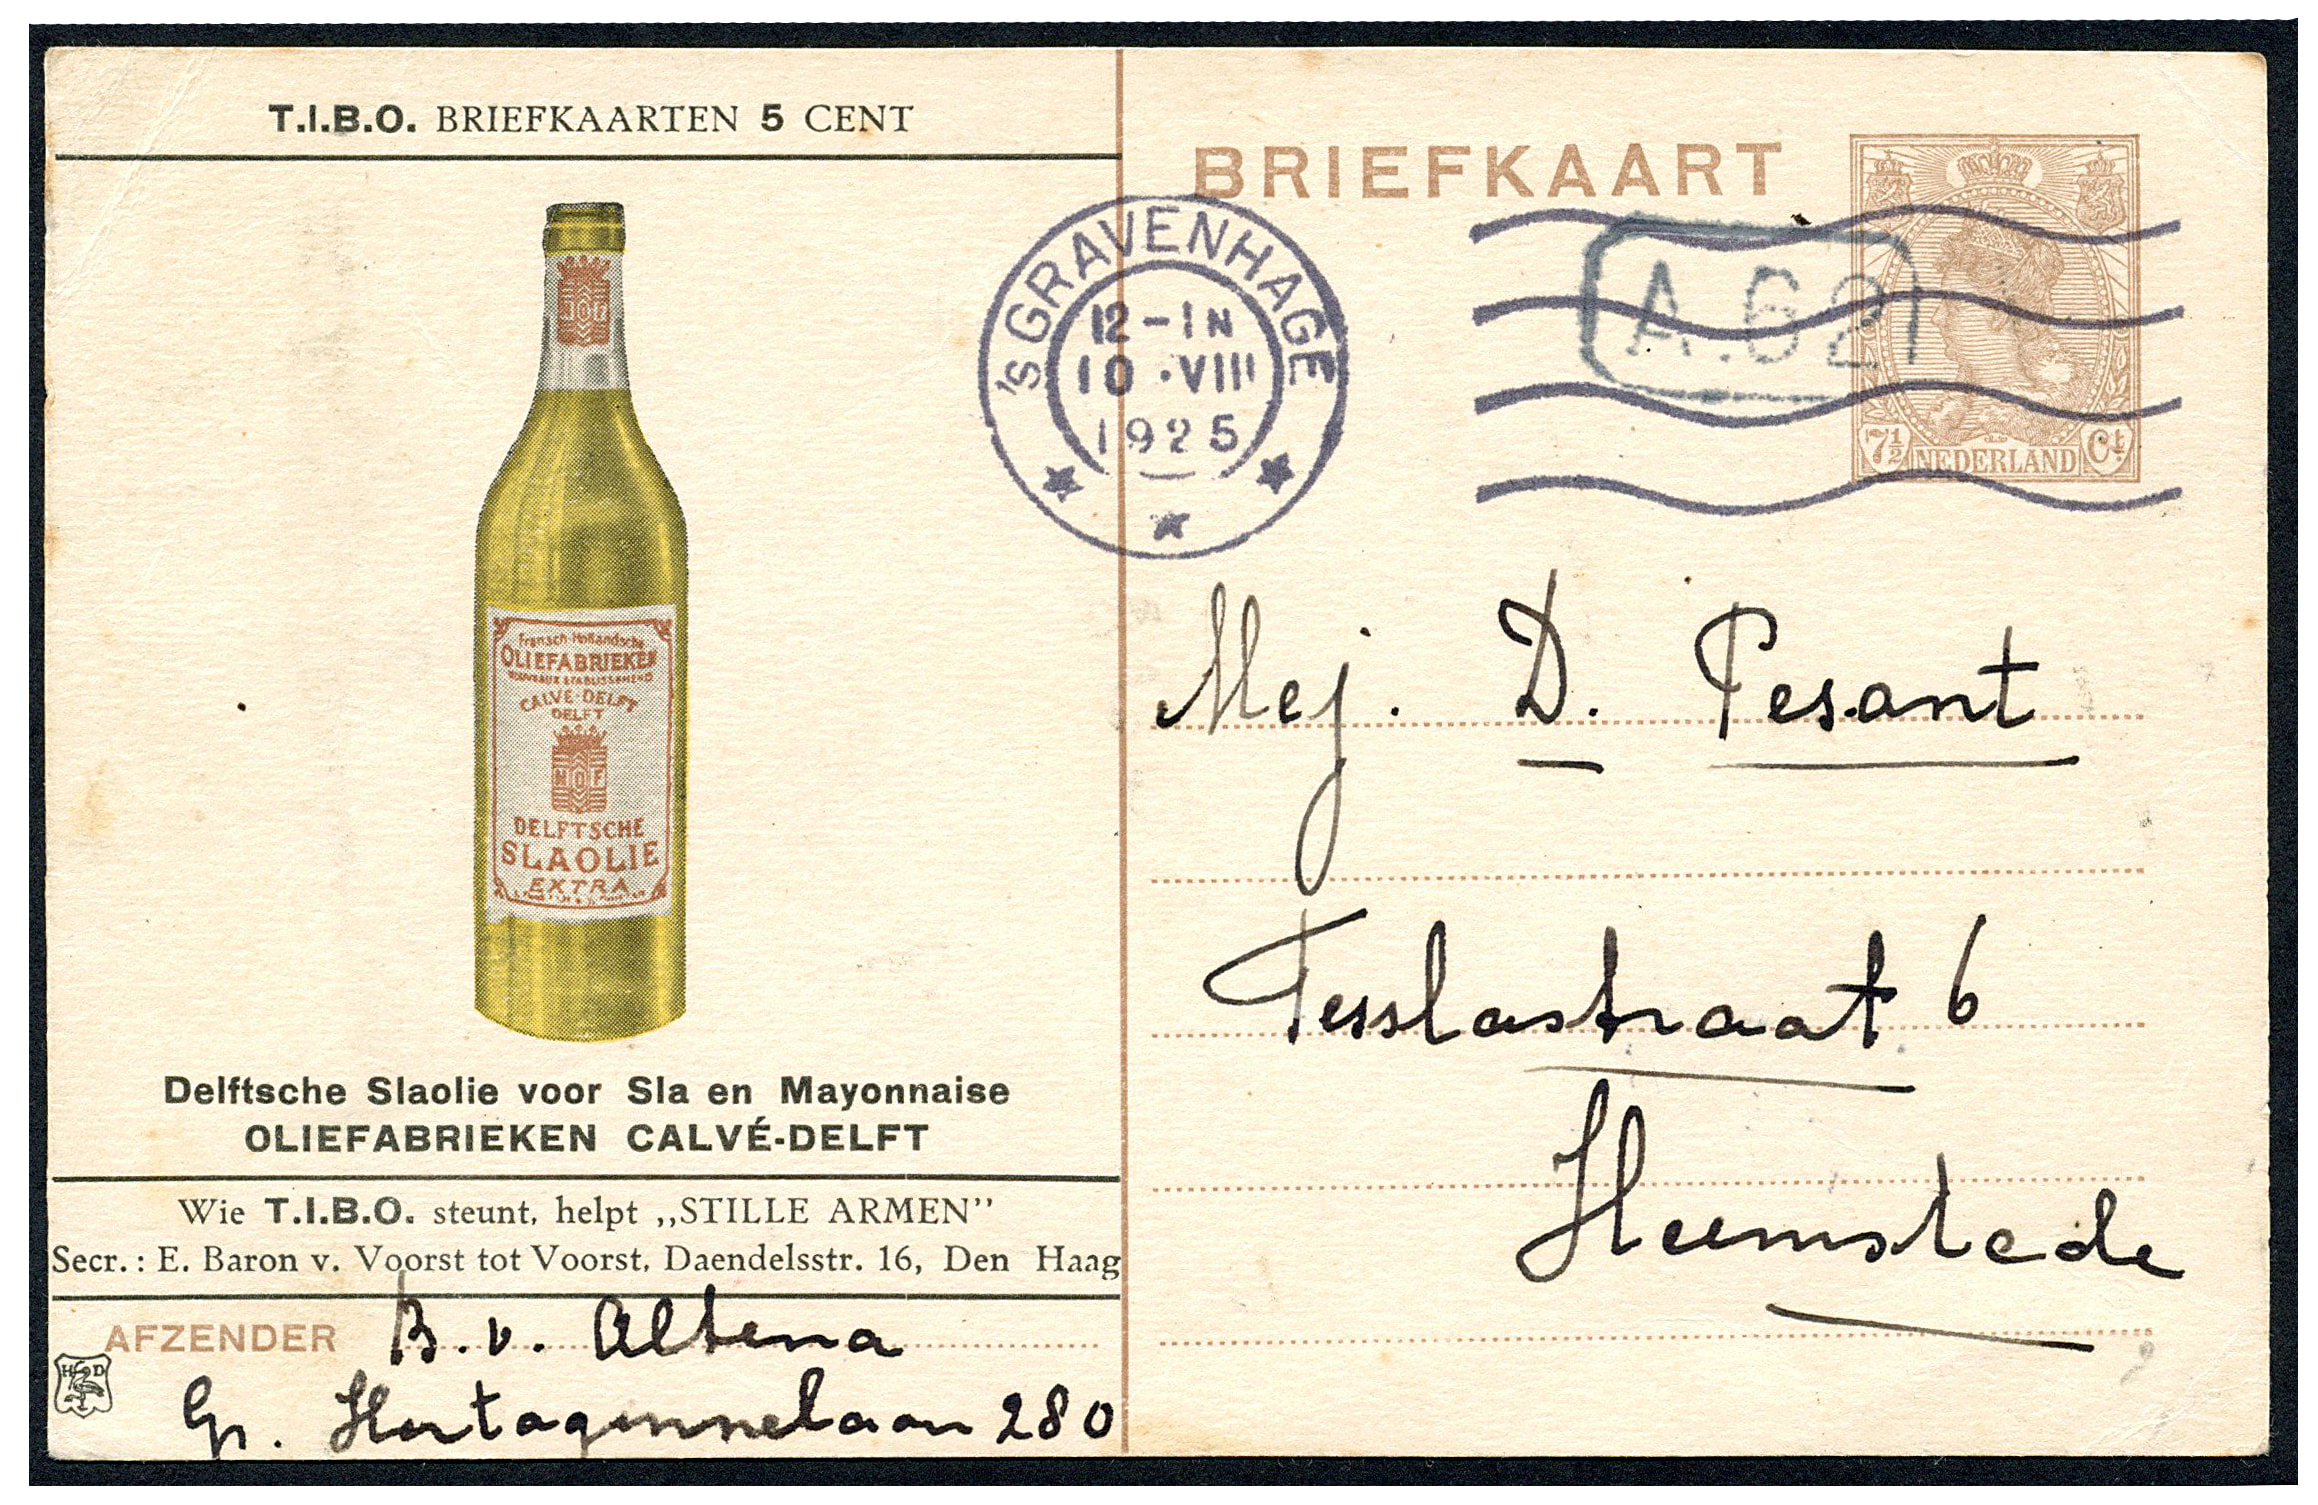 T.I.B.O. BRIEFKAARTEN 5 CENT
Fransch-Hollandsche
OLIEFABRIEKEN
CALVÉ-DELFT
DELFT
NOF
DELFTSCHE
SLAOLIE
EXTRA
Delftsche Slaolie voor Sla en Mayonnaise
OLIEFABRIEKEN CALVÉ-DELFT
Wie T.I.B.O. steunt, helpt „STILLE ARMEN”
Secr.: E. Baron v. Voorst tot Voorst, Daendelsstr. 16, Den Haag
AFZENDER B. v. Altena
HD
Gr. Hertoginnelaan 280
BRIEFKAART
'SGRAVENHAGE
12-1N
10.VIII
1925
A.62
7½ NEDERLAND Ct.
Mej. D. Pesant
Tesslastraat 6
Heemstede